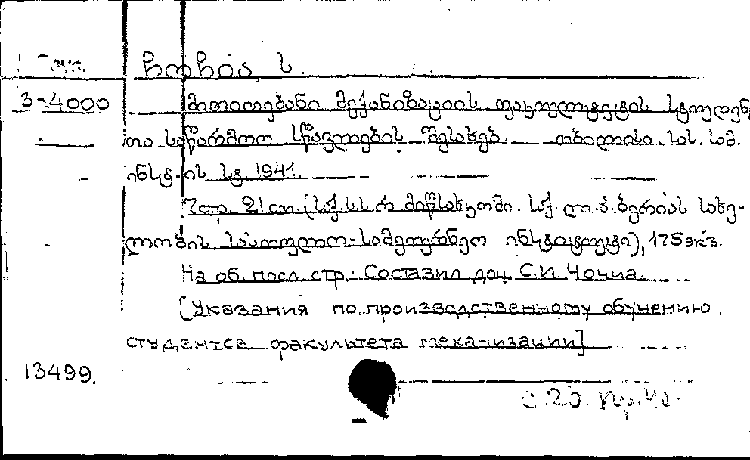 ჩოჩია ს.
3-4000 მითითებანი მექანიზაციის ფაკულტეტის სტუდენ
თა საწარმოო სწავლების შესახებ. თბილისი. სას. სამ.
ინსტ-ის სტ. 1941.
7 გვ. 21 სმ. (საქ. სსრ მიწსახკომი. საქ. ლ. პ. ბერიას სახე-
ლობის სასოფლო-სამეურნეო ინსტიტუტი), 175 ეკზ.
На об. посл. стр.: Составил доц. С.И. Чочиа.
[Указания по производственному обучению
студентов факультета механизации]
13499.